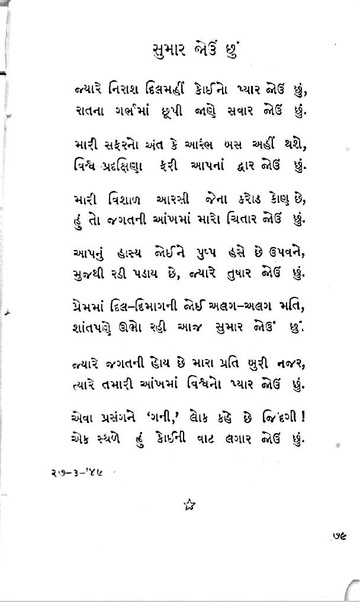 સુમાર જોઉં છું
જ્યારે નિરાશ દિલમહીં કોઈનો પ્યાર જોઉં છું,
રાતના ગર્ભમાં છૂપી જાણે સવાર જોઉં છું.
મારી સફરનો અંત કે આરંભ બસ અહીં થશે,
વિશ્વ પ્રદક્ષિણા ફરી આપનાં દ્વાર જોઉં છું.
મારી વિશાળ આરસી જેના કરોડ કોણ છે,
હું તો જગતની આંખમાં મારો ચિતાર જોઉં છું.
આપનું હાસ્ય જોઈને પુષ્પ હસે છે ઉપવને,
મુજથી રડી પડાય છે, જ્યારે તુષાર જોઉં છું.
પ્રેમમાં દિલ-દિમાગની જોઈ અલગ-અલગ મતિ,
શાંતપણે ઉભો રહી આજ સુમાર જોઉં છું.
જ્યારે જગતની હોય છે મારા પ્રતિ બુરી નજર,
ત્યારે તમારી આંખમાં વિશ્વનો પ્યાર જોઉં છું.
એવા પ્રસંગને ‘ગની,’ લોક કહે છે જિંદગી!
એક સ્થળે હું કોઈની વાટ લગાર જોઉં છું.
૨૭-૩-’૪૯
૭૯